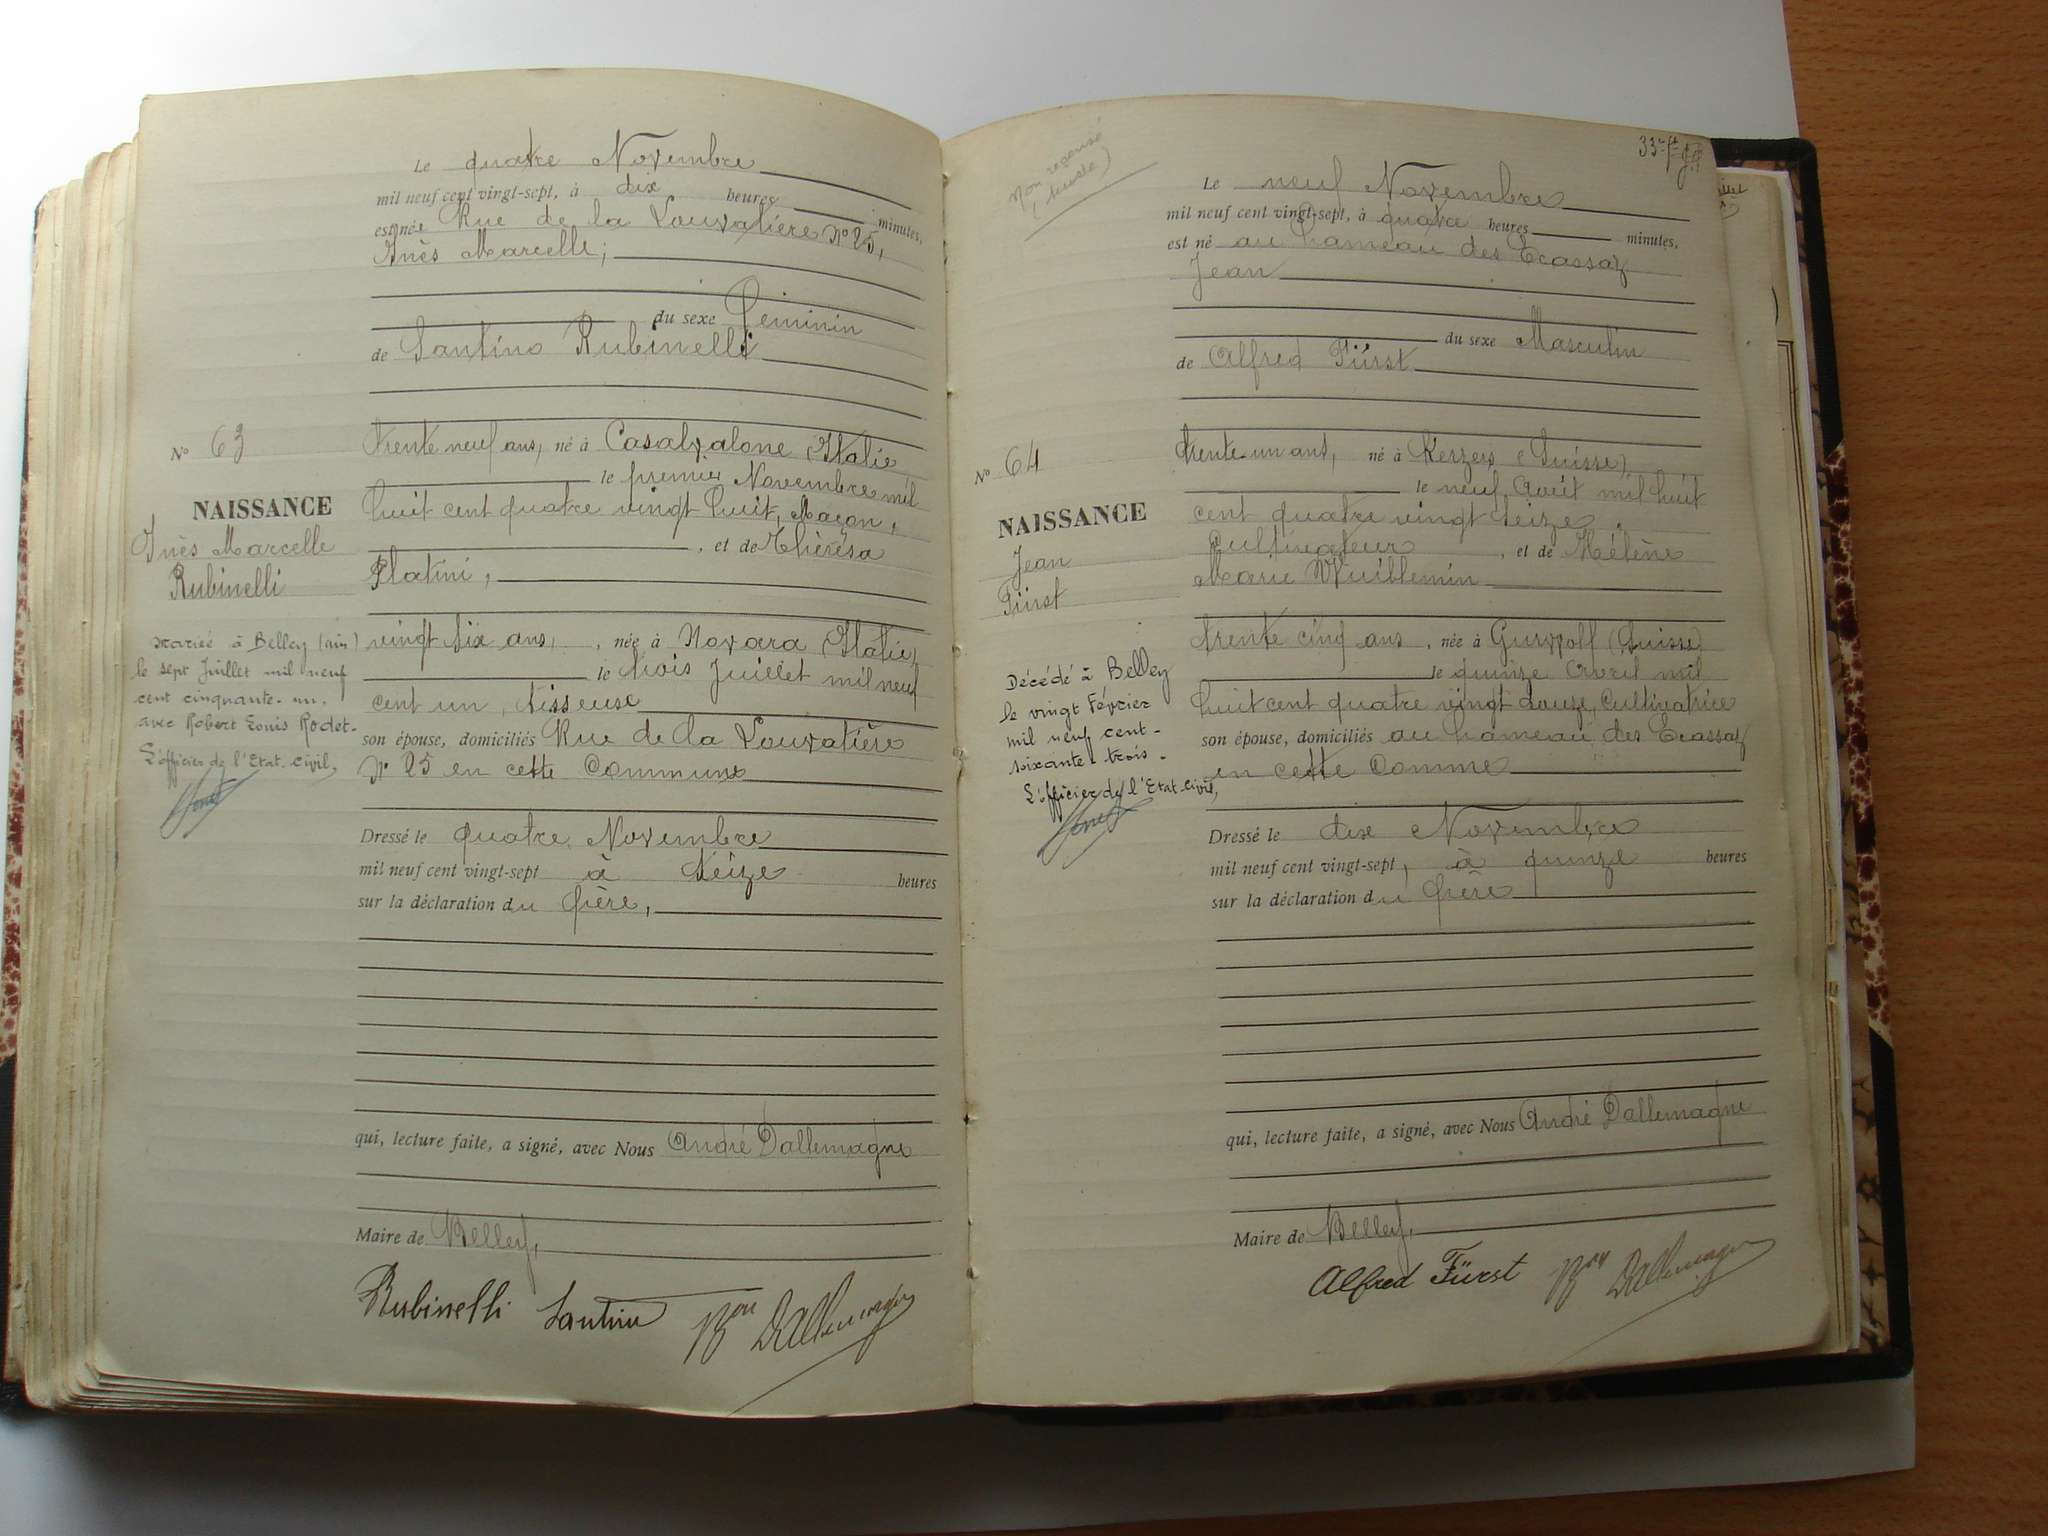 Le quatre Novembre
mil neuf cent vingt-sept, à dix heures minutes,
est née Rue de la Louvatière No 25,
Inès Marcelle;
du sexe Féminin
de Santino Rubinelli
No 63
NAISSANCE
Inès Marcelle
Rubinelli
Mariée à Belley (Ain)
le sept Juillet mil neuf
cent cinquante-un.
avec Robert Louis Rodet-
L'officier de l'Etat-Civil,
trente neuf ans, né à Casalvalone (Italie)
le premier Novembre mil
huit cent quatre vingt huit, Maçon,
, et de Thérèsa
Platini,
vingt six ans, , née à Novara (Italie)
le trois Juillet mil neuf
cent un, tisseuse
son épouse, domiciliés Rue de la Louvatière
No 25 en cette Commune
Dressé le quatre Novembre
mil neuf cent vingt-sept à seize heures
sur la déclaration du père,
qui, lecture faite, a signé, avec Nous André Dallemagne
Maire de Belley,
Rubinelli Santino Bon Dallemagne
33
Non recensé
Le neuf Novembre
mil neuf cent vingt-sept, à quatre heures minutes,
est né au hameau des Ecassaz
Jean
du sexe Masculin
de Alfred Fürst
No 64
NAISSANCE
Jean
Fürst
Décédé à Belley
le vingt Février
mil neuf cent-
soixante-trois.
L'officier de l'Etat-Civil,
trente-un ans, né à Kerzers (Suisse),
le neuf Août mil huit
cent quatre vingt seize,
Cultivateur , et de Hélène
Marie Wuillemin
trente cinq ans , née à (Suisse)
le quinze Avril mil
huit cent quatre vingt douze, Cultivatrice
son épouse, domiciliés au hameau des Ecassaz
en cette Comme
Dressé le dix Novembre
mil neuf cent vingt-sept, à quinze heures
sur la déclaration du père
qui, lecture faite, a signé, avec Nous André Dallemagne
Maire de Belley,
Alfred Fürst Bon Dallemagne